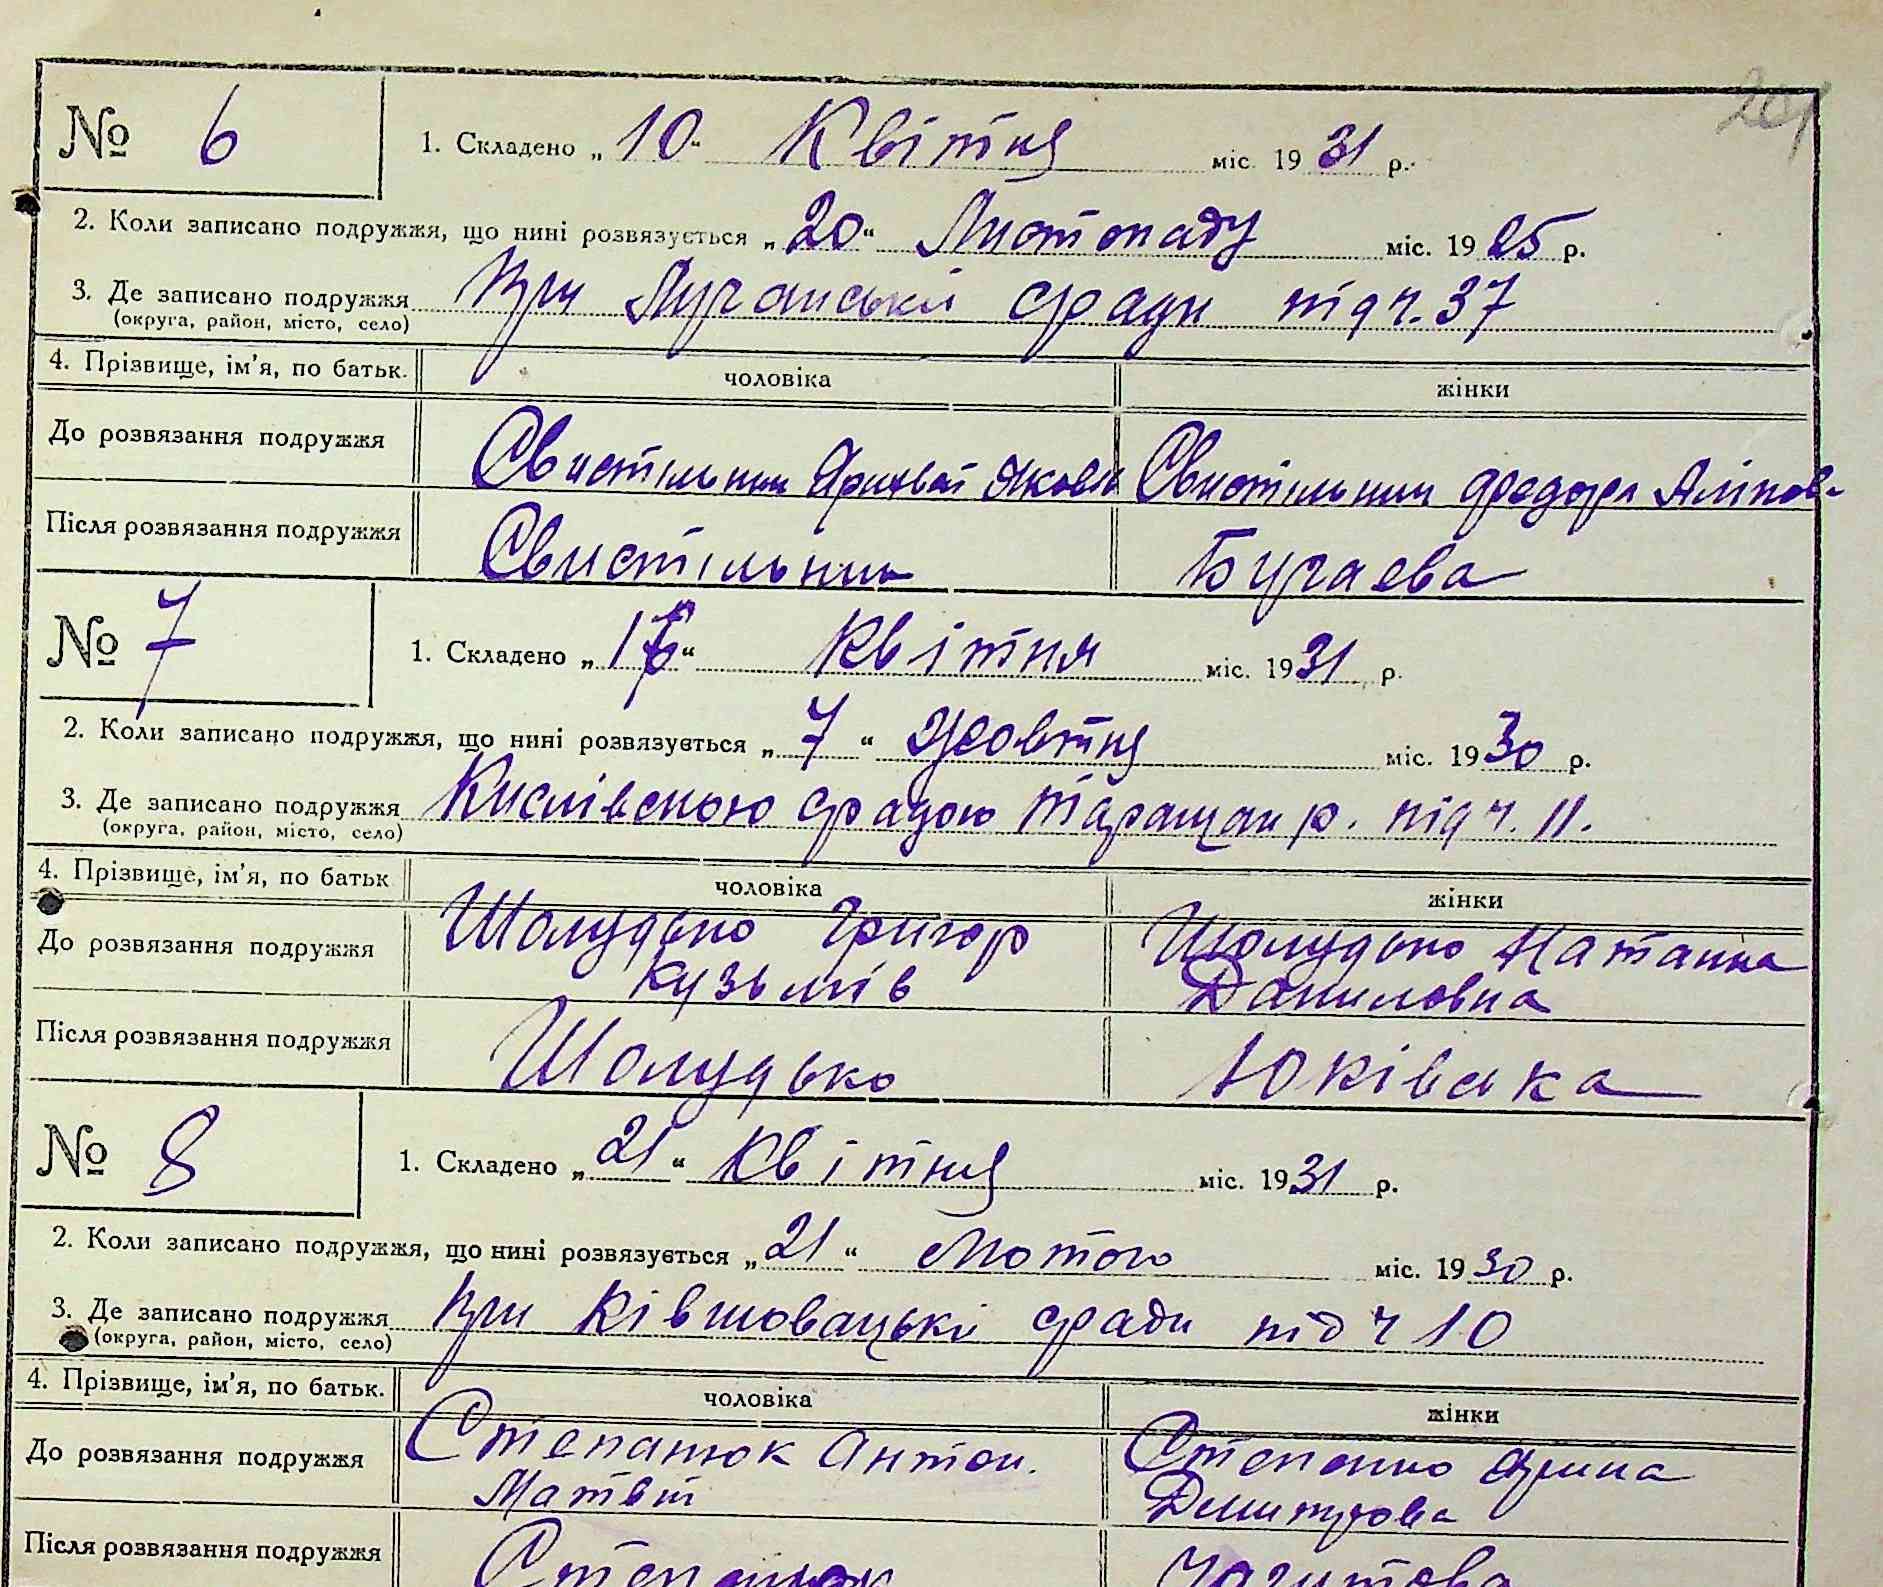 201
№ 6 1. Складено „10“ Квітня міс. 1931 р.
2. Коли записано подружжя, що нині розвязується „20“ Листопаду міс. 1925 р.
3. Де записано подружжя При Лучанські сради під ч. 37
(округа, район, місто, село)
4. Прізвище, ім’я, по батьк. чоловіка жінки
До розвязання подружжя Свистільник Яков Свистільник Федора
Після розвязання подружжя Свистільник Бугаева
№ 7 1. Складено „16“ Квітня міс. 1931 р.
2. Коли записано подружжя, що нині розвязується „7“ Жовтня міс. 1930 р.
3. Де записано подружжя Кислівскою срадою Таращан р. під ч. 11.
(округа, район, місто, село)
4. Прізвище, ім’я, по батьк чоловіка жінки
До розвязання подружжя Шолудько Григор Шолудько Наталка
Кузьмів Даниловна
Після розвязання подружжя Шолудько Юківська
№ 8 1. Складено „21“ Квітня міс. 1931 р.
2. Коли записано подружжя, що нині розвязується „21“ Лютого міс. 1930 р.
3. Де записано подружжя При Ківшовацькі сради під ч 10
(округа, район, місто, село)
4. Прізвище, ім’я, по батьк. чоловіка жінки
До розвязання подружжя Степанюк Антон. Степанюк Ярина
Матвій Дмитрова
Після розвязання подружжя Степанюк